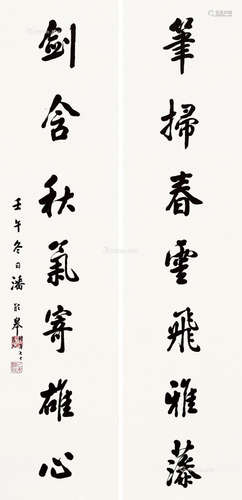 筆掃春雲飛雅藻
劍含秋氣寄雄心
壬午冬日潘齡皋